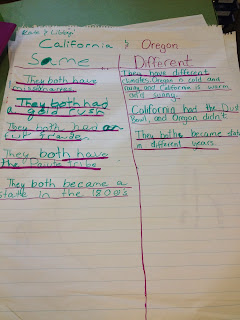 California & Oregon
Same
They both have
missionaries.
They both had
a gold rush
They both had an
fur trade
They both have
the Paiute tribe
They both became a
state in the 1800's
Different
They have different
climates. Oregon is cold and
rainy and California is warm
and sunny.
California had the Dust
Bowl, and Oregon didn't
They both became states
in different years.